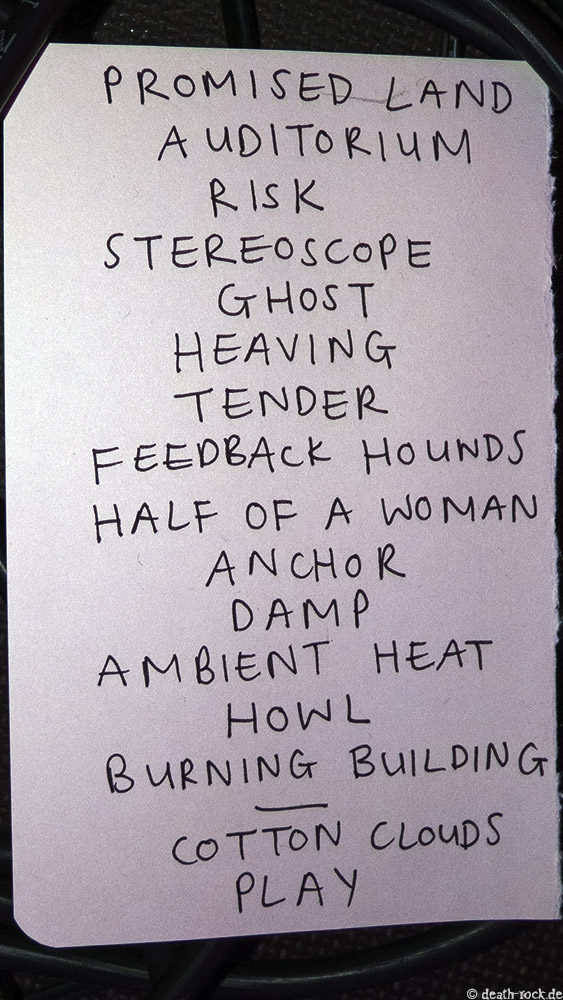 PROMISED LAND
AUDITORIUM
RISK
STEREOSCOPE
GHOST
HEAVING
TENDER
FEEDBACK HOUNDS
HALF OF A WOMAN
ANCHOR
DAMP
AMBIENT HEAT
HOWL
BURNING BUILDING
COTTON CLOUDS
PLAY
© death-rock.de